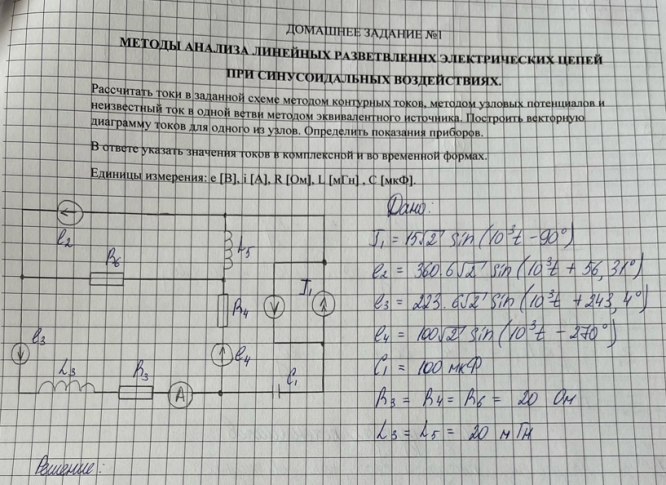 ДОМАШНЕЕ ЗАДАНИЕ №1
МЕТОДЫ АНАЛИЗА ЛИНЕЙНЫХ РАЗВЕТВЛЕННХ ЭЛЕКТРИЧЕСКИХ ЦЕПЕЙ
ПРИ СИНУСОИДАЛЬНЫХ ВОЗДЕЙСТВИЯХ.
Рассчитать токи в заданной схеме методом контурных токов, методом узловых потенциалов и
неизвестный ток в одной ветви методом эквивалентного источника. Построить векторную
диаграмму токов для одного из узлов. Определить показания приборов.
В ответе указать значения токов в комплексной и во временной формах.
Единицы измерения: e [В], i [А], R [Ом], L [мГн] , C [мкФ].
Дано:
J₁ = 15√2 sin(10³t − 90°)
e₂ = 360.6√2 sin(10³t + 56,31°)
e₃ = 223.6√2 sin(10³t + 243,4°)
e₄ = 100√2 sin(10³t − 270°)
C₁ = 100 мкФ
R₃ = R₄ = R₆ = 20 Ом
L₃ = L₅ = 20 мГн
e₂
R₆
L₅
J₁
R₄
V
e₃
e₄
L₃
R₃
A
C₁
Решение: